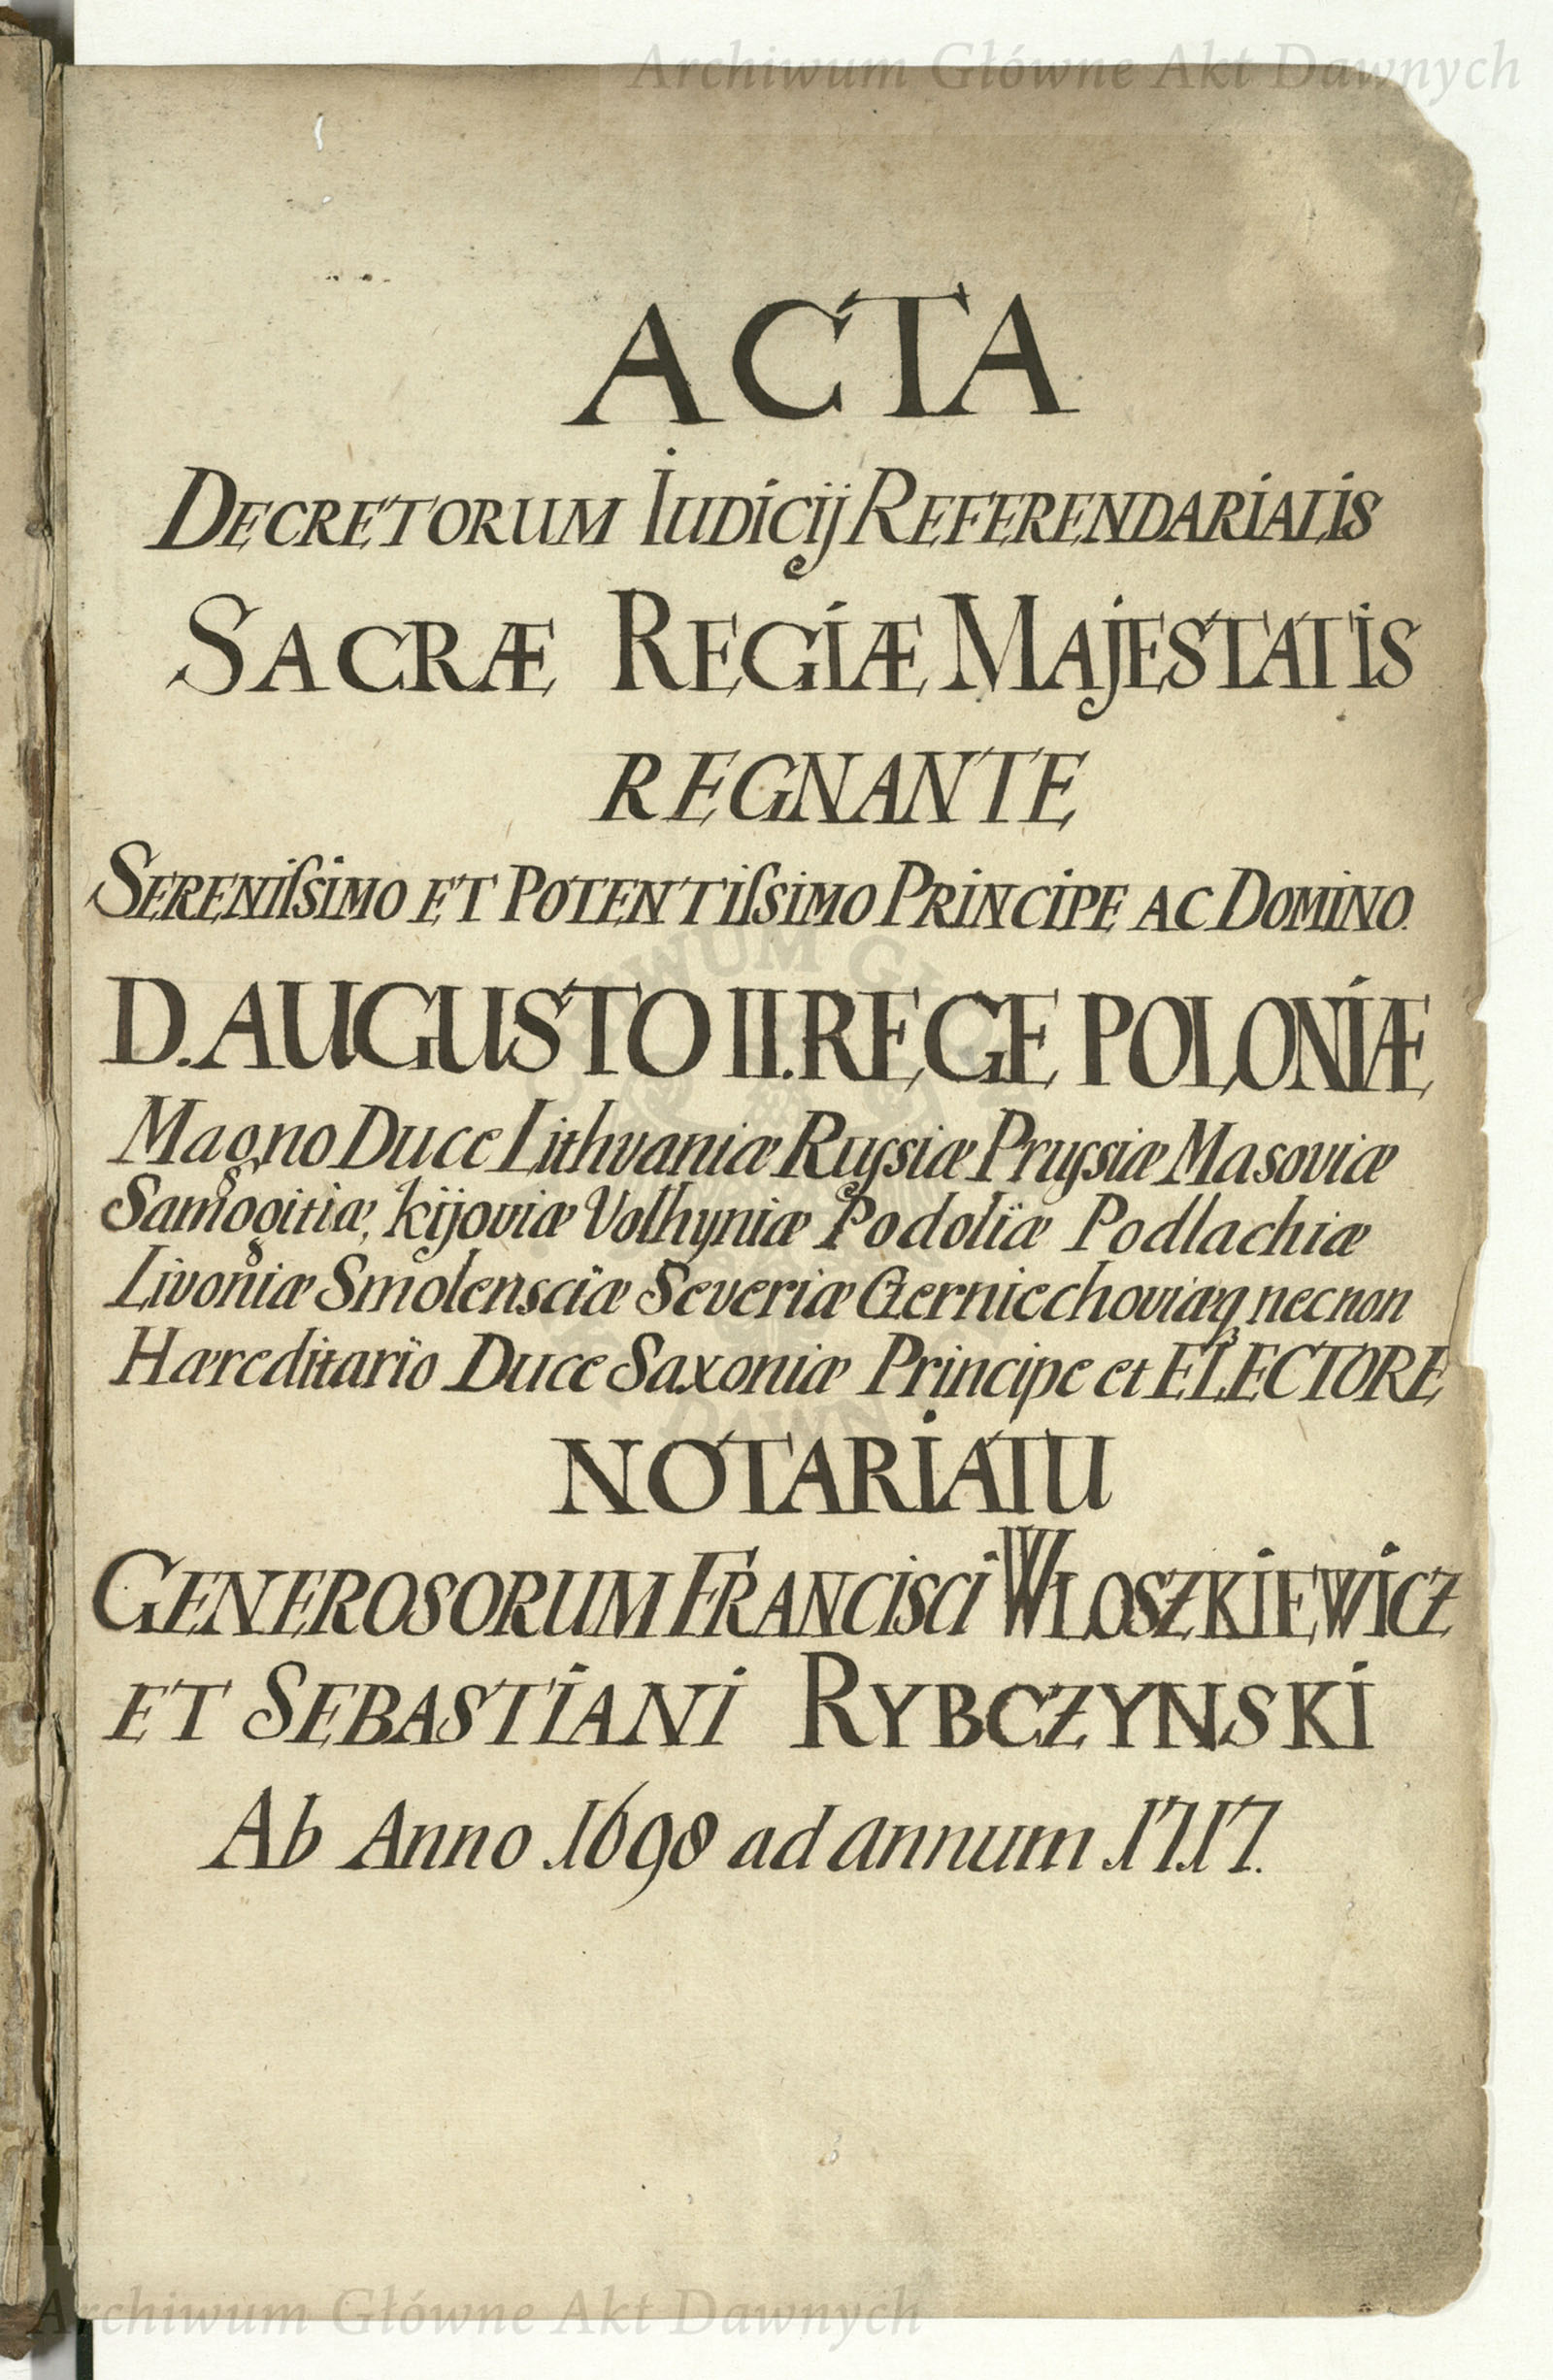 Archiwum Główne Akt Dawnych
ACTA
DECRETORUM IUDICIJ REFERENDARIALIS
SACRÆ REGIÆ MAJESTATIS
REGNANTE
SERENIſSIMO ET POTENTIſSIMO PRINCIPE AC DOMINO.
D. AUGUSTO II. REGE POLONIÆ
Magno Duce Lithvaniæ Ruſsiæ Pruſsiæ Masoviæ
Samogitiæ, Kijoviæ Volhyniæ Podoliæ Podlachiæ
Livoniæ Smolensciæ Severiæ Czerniechoviæq necnon
Hæreditario Duce Saxoniæ Principe et ELECTORE
NOTARIATU
GENEROSORUM FRANCISCI WŁOSZKIEWICZ
ET SEBASTIANI RYBCZYNSKI
Ab Anno .1698 ad annum .1717.
Archiwum Główne Akt Dawnych